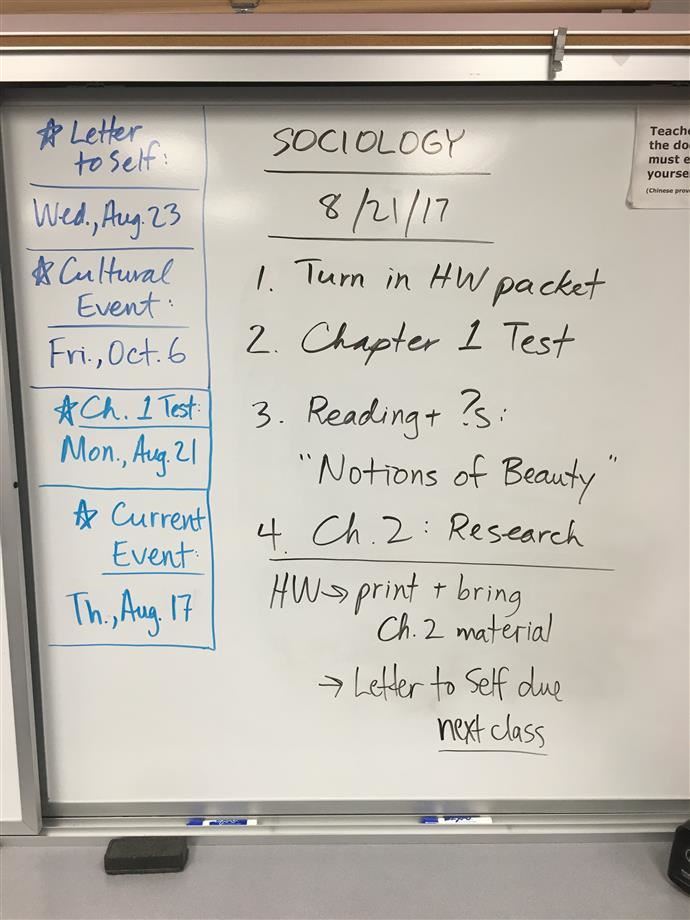 ☆ Letter
to Self:
Wed., Aug. 23
☆ Cultural
Event:
Fri., Oct. 6
☆ Ch. 1 Test:
Mon., Aug. 21
☆ Current
Event:
Th., Aug. 17
SOCIOLOGY
8/21/17
1. Turn in HW packet
2. Chapter 1 Test
3. Reading + ?s:
"Notions of Beauty"
4. Ch. 2: Research
HW → print + bring
Ch. 2 material
→ Letter to Self due
next class
Teache
the do
must e
yourse
(Chinese prov